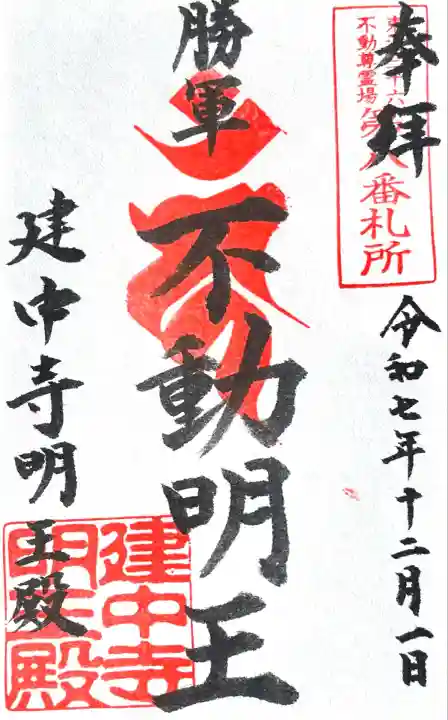 奉拝
不動尊霊場
第八番札所
令和七年十二月一日
勝軍
不動明王
建中寺明王殿
建中寺
明王殿